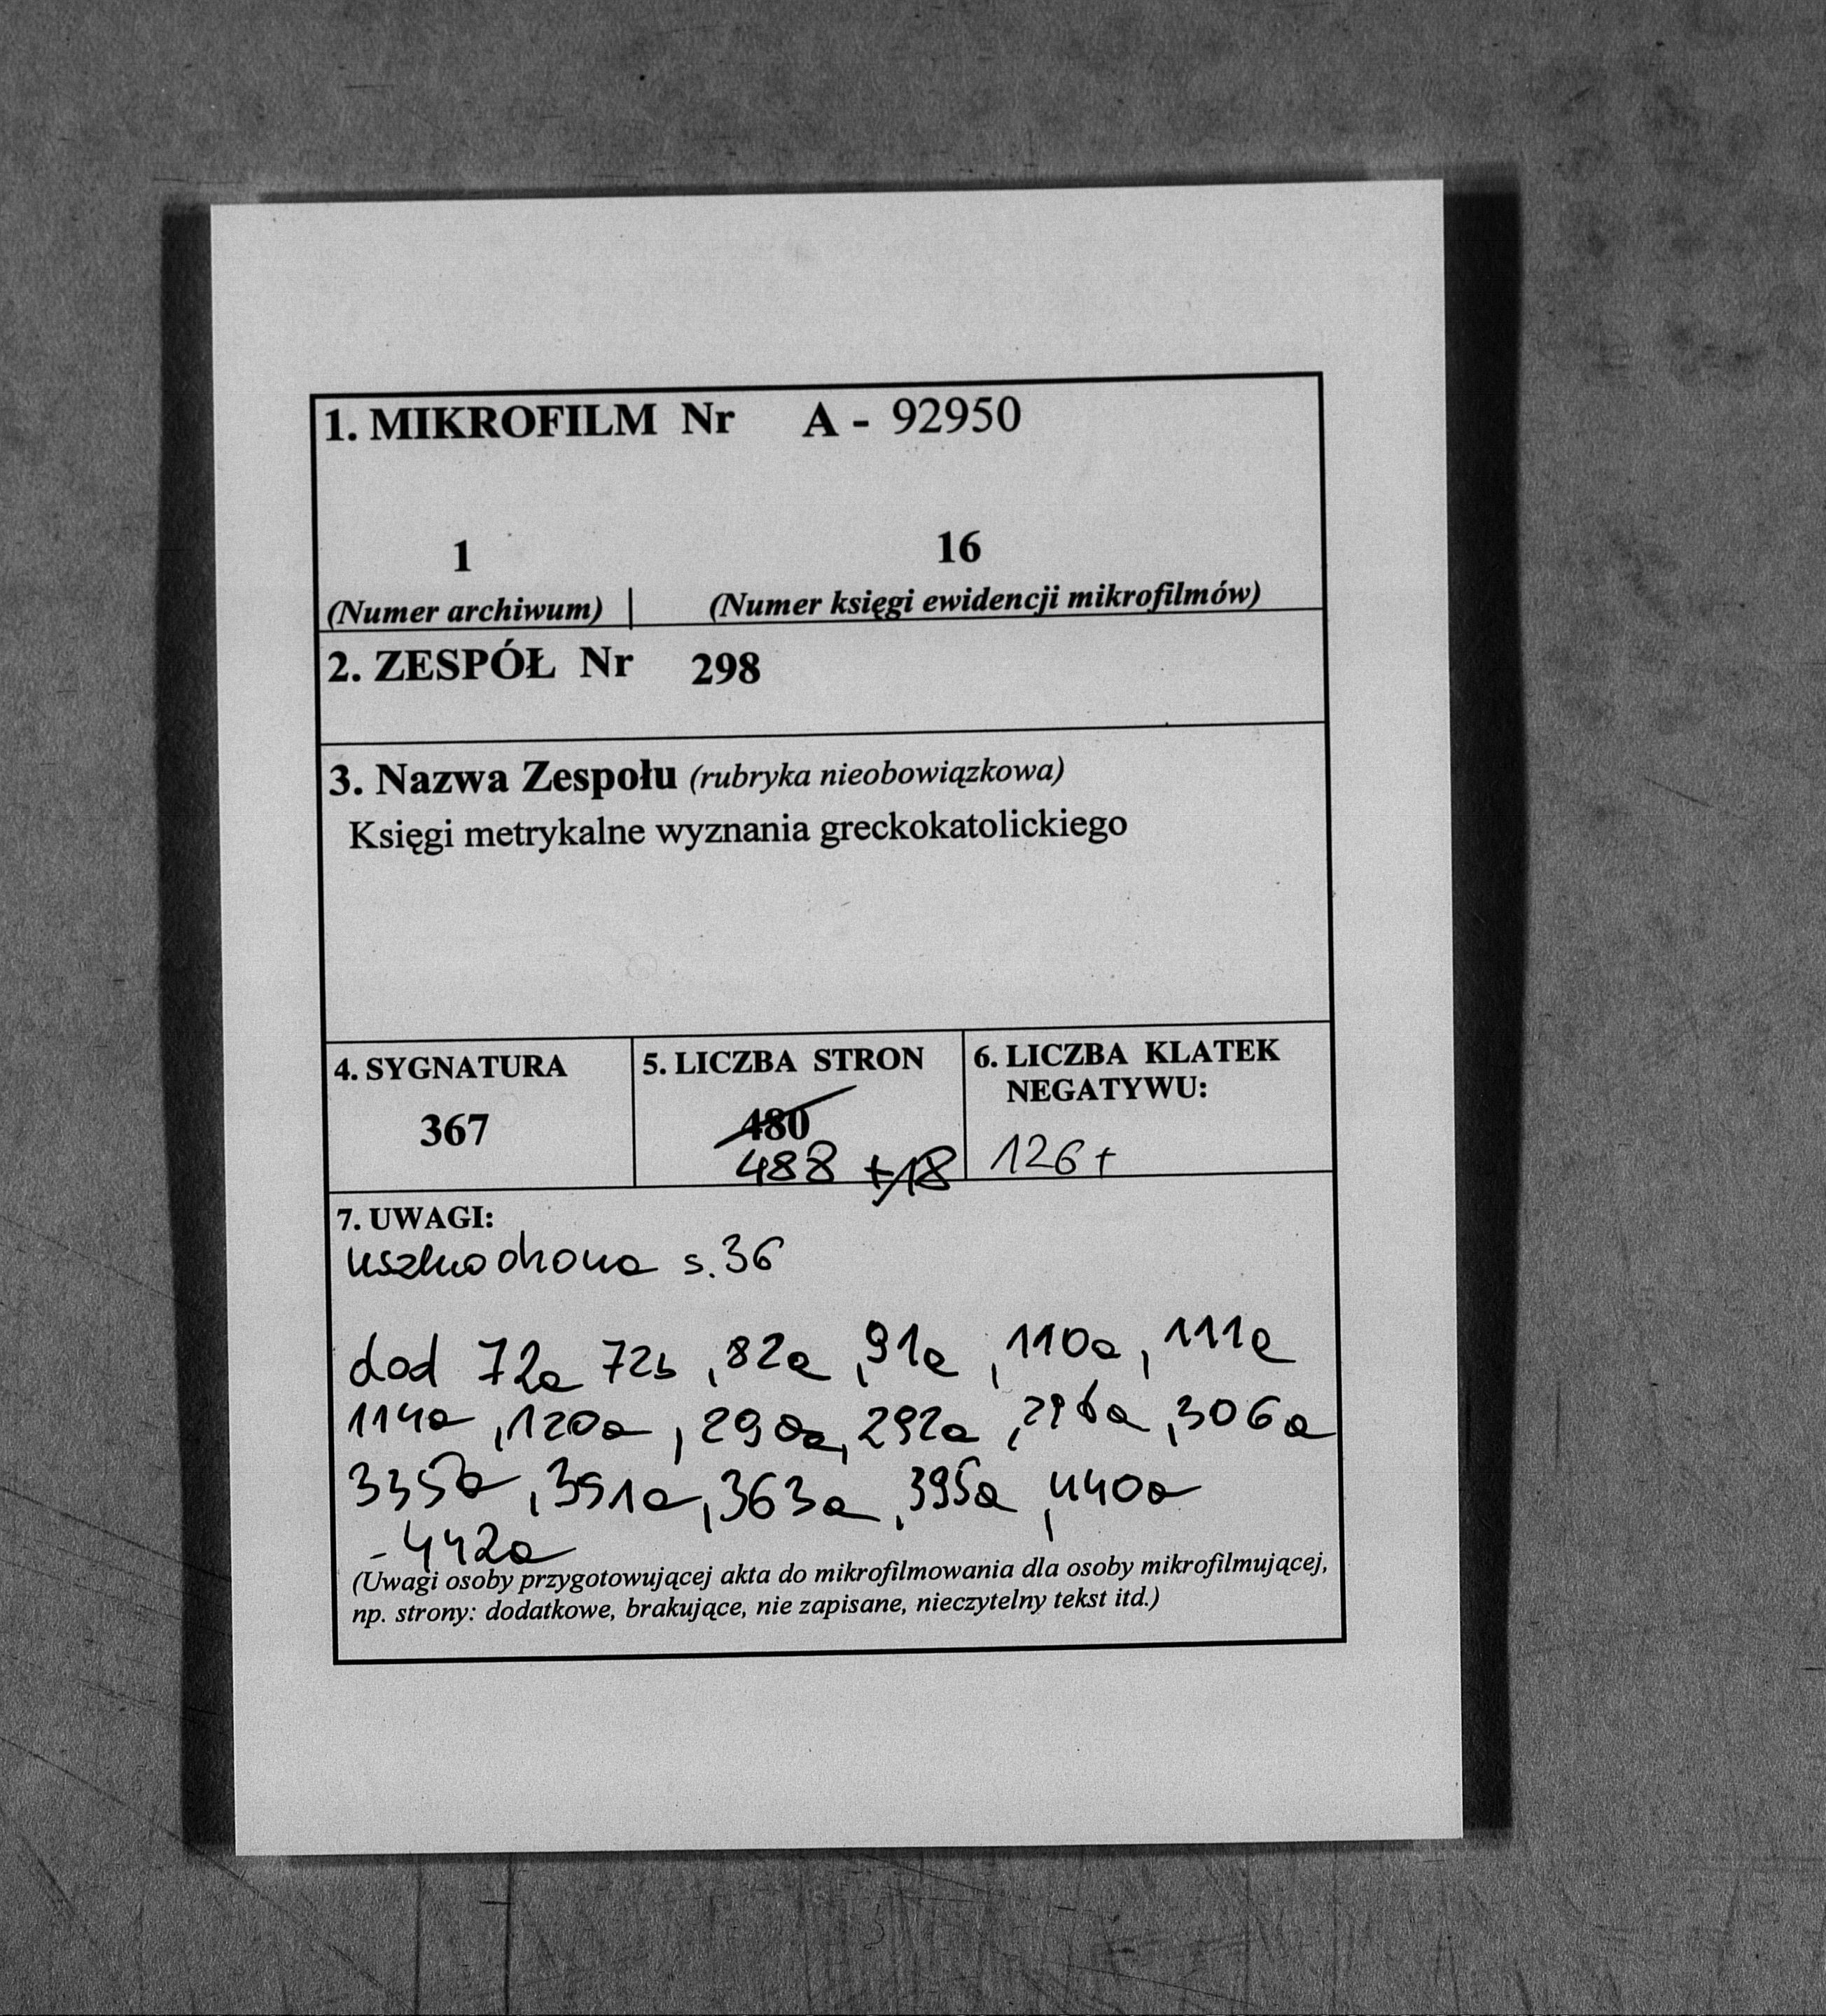 1. MIKROFILM Nr A - 92950
1 16
(Numer archiwum) | (Numer księgi ewidencji mikrofilmów)
2. ZESPÓŁ Nr 298
3. Nazwa Zespołu (rubryka nieobowiązkowa)
Księgi metrykalne wyznania greckokatolickiego
4. SYGNATURA 5. LICZBA STRON 6. LICZBA KLATEK
NEGATYWU:
367 480
488 +18 126+
7. UWAGI:
uszkodzona s. 36
dod 72a 72b, 82a, 91a, 110a, 111a
114a, 120a, 290a, 292a, 296a, 306a
335a, 351a, 363a, 395a, 440a
- 442a
(Uwagi osoby przygotowującej akta do mikrofilmowania dla osoby mikrofilmującej,
np. strony: dodatkowe, brakujące, nie zapisane, nieczytelny tekst itd.)